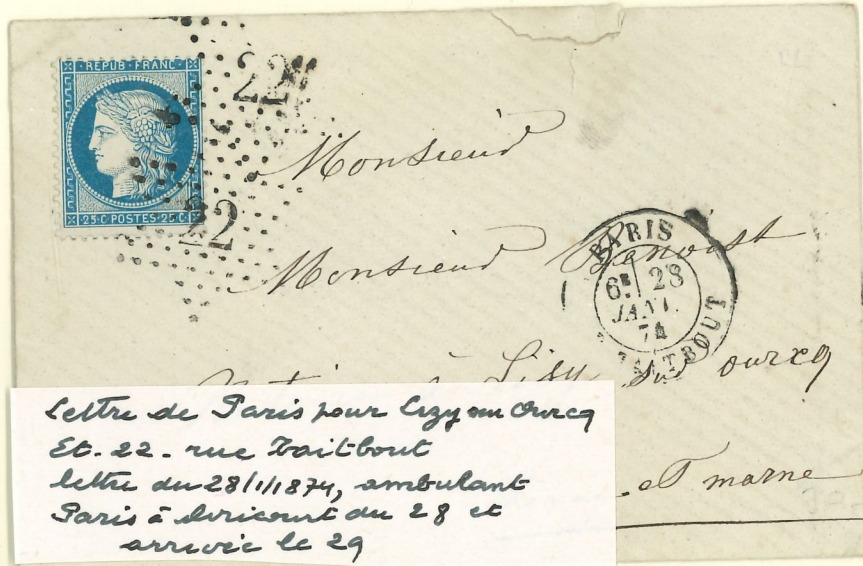 REPUB·FRANC
25·C·POSTES·25·C
22
22
Monsieur
Monsieur Benoist
PARIS
6E 28
JANV.
74
TAITBOUT
à Lizy sur ourcq
et marne
Lettre de Paris pour Lizy sur Ourcq
Et. 22 - rue Taitbout
lettre du 28/1/1874, ambulant
Paris à du 28 et
arrivée le 29